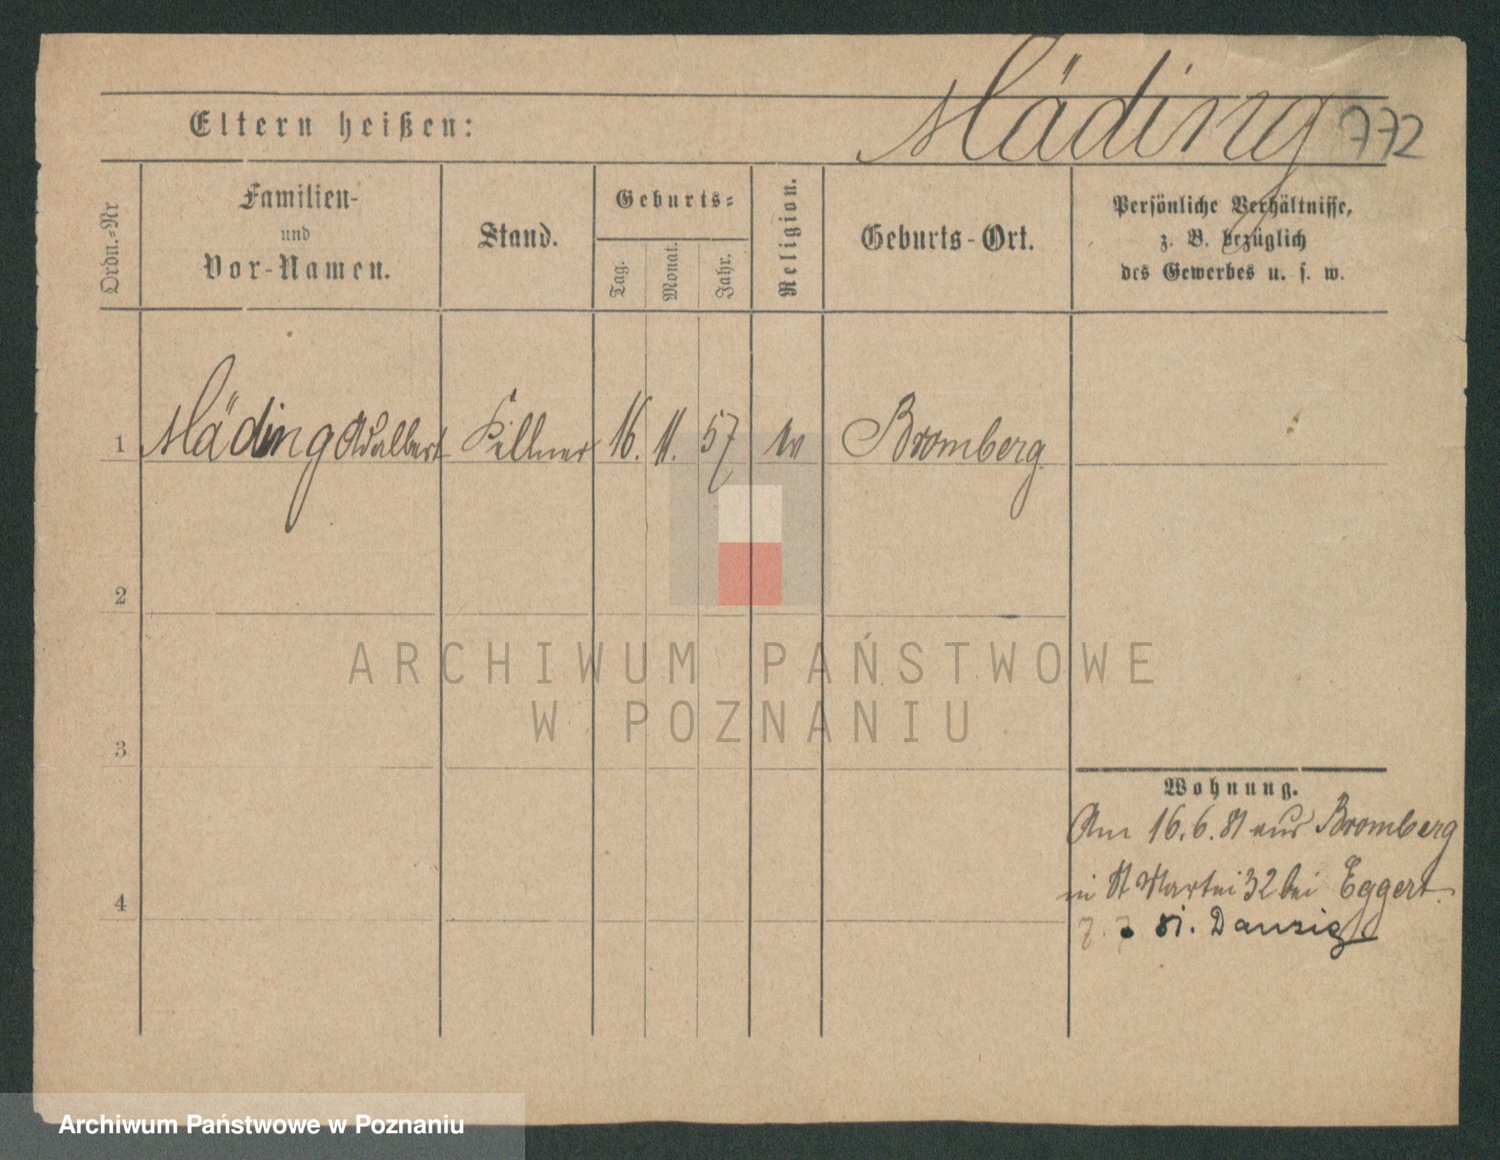 Mäding
772
Eltern heißen:
Ordn.-Nr
Familien-
und
Vor-Namen.
Stand.
Geburts-
Tag.
Monat.
Jahr.
Religion.
Geburts-Ort.
Persönliche Verhältnisse,
z. B. bezüglich
des Gewerbes u. s. w.
1 Mäding Adalbert Kellner 16. 11. 57 ev Bromberg
2
3
4
Wohnung.
Am 16.6.81 aus Bromberg
in St Martin 32 bei Eggert.
7. 7 81. Danzig
ARCHIWUM PAŃSTWOWE
W POZNANIU
Archiwum Państwowe w Poznaniu